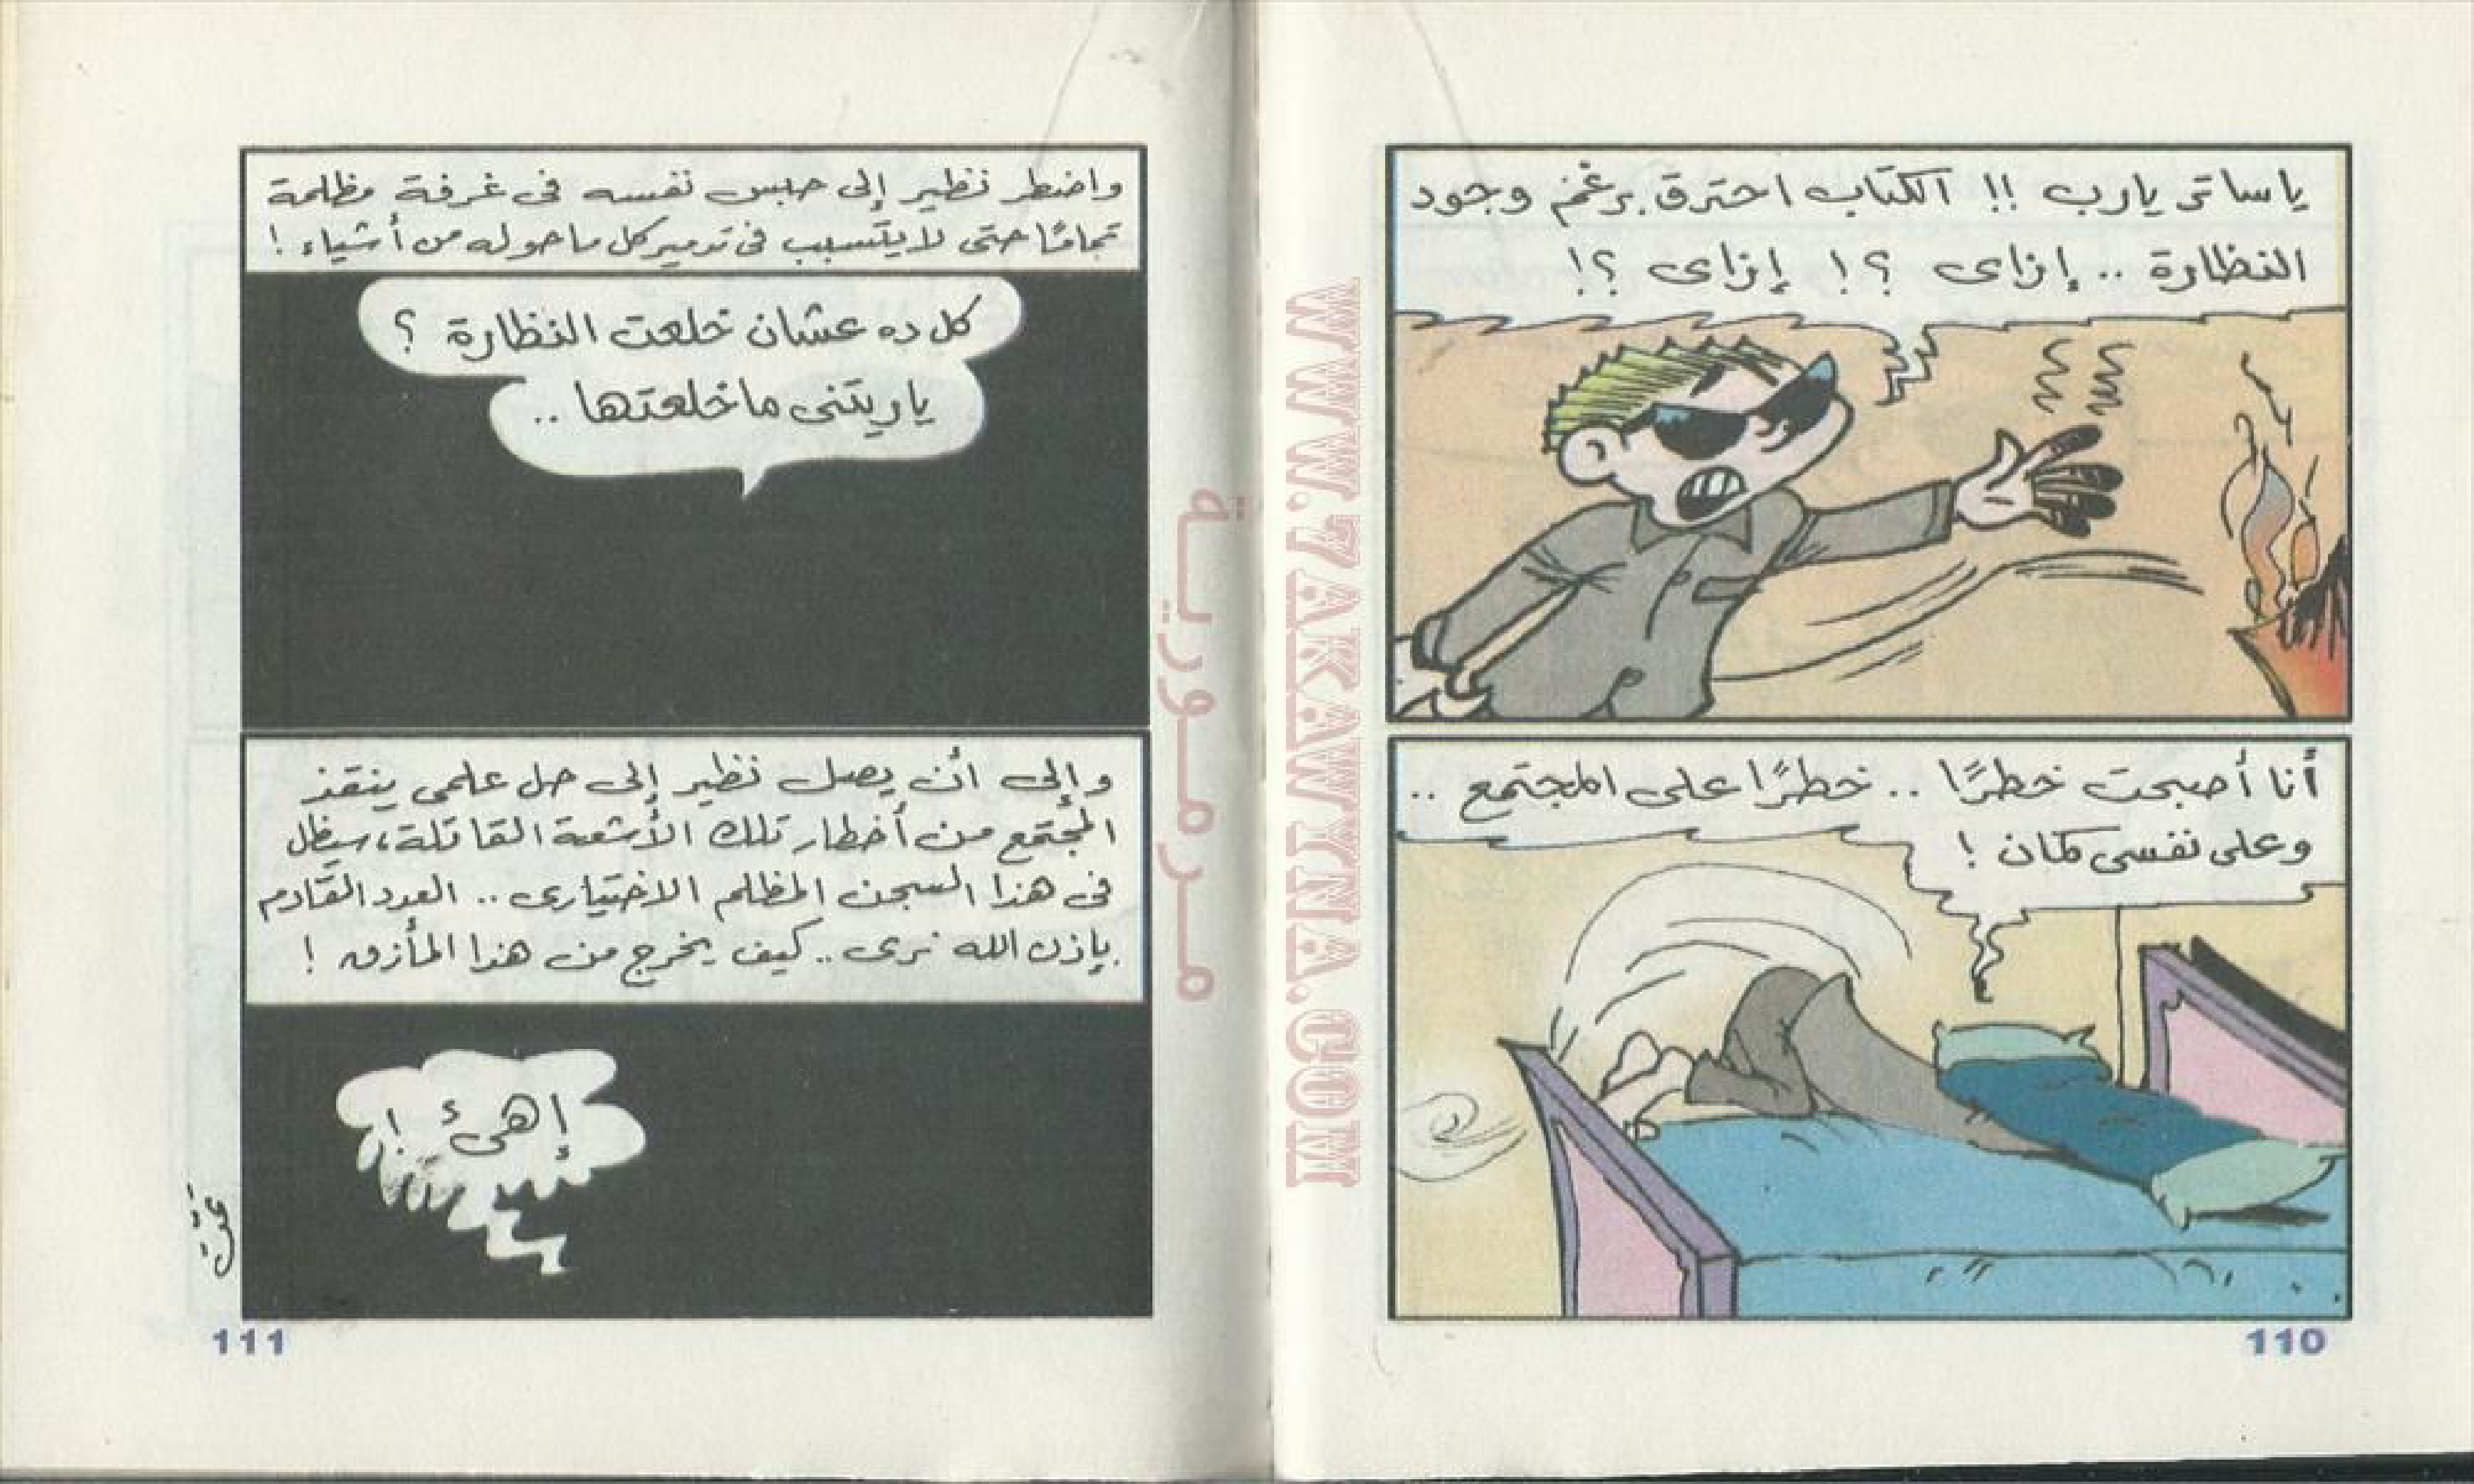 ياساتر يارب !! الكتاب احترق برغم وجود
النظارة .. إزاى ؟! إزاى ؟!
أنا أصبحت خطرًا .. خطرًا على المجتمع ..
وعلى نفسى كمان !
110
واضطر نظير إلى حبس نفسه فى غرفة مظلمة
تمامًا حتى لا يتسبب فى تدمير كل ما حوله من أشياء !
كل ده عشان خلعت النظارة ؟
ياريتنى ماخلعتها ..
وإلى أن يصل نظير إلى حل علمى ينقذ
المجتمع من أخطار تلك الأشعة القاتلة، سيظل
فى هذا السجن المظلم الاختيارى .. العدد القادم
بإذن الله نرى .. كيف يخرج من هذا المأزق !
إهئ !
111
مرمورية
WWW.7AKAWYNA.COM